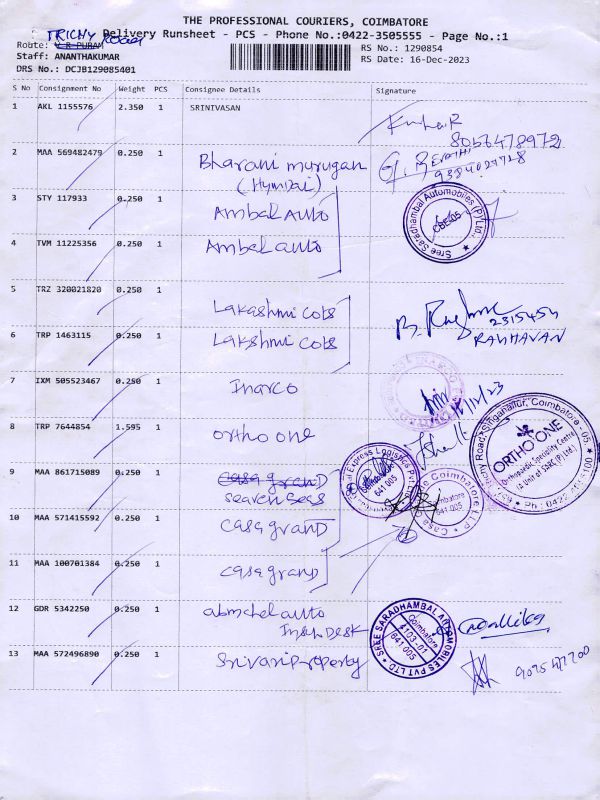 THE PROFESSIONAL COURIERS, COIMBATORE
Delivery Runsheet - PCS - Phone No.:0422-3505555 - Page No.:1
TRICHY ROAD
Route: V R PURAM
RS No.: 1290854
Staff: ANANTHAKUMAR
RS Date: 16-Dec-2023
DRS No.: DCJB129085401
S No Consignment No Weight PCS Consignee Details Signature
1 AKL 1155576 2.350 1 SRINIVASAN
8056478972
2 MAA 569482479 0.250 1 Bharani murugan
(Hyundai)
3 STY 117933 0.250 1 Ambal Auto
Sree Saradhambal Automobiles (P) Ltd.,
CBE-05
4 TVM 11225356 0.250 1 Ambal auto
5 TRZ 320021820 0.250 1 Lakashmi cots
2315454
RAGHAVAN
6 TRP 1463115 0.250 1 Lakshmi cots
7 IXM 505523467 0.250 1 Inarco
16/12/23
8 TRP 7644854 1.595 1 ortho one
ORTHO ONE
Orthopaedic Speciality Centre
9 MAA 861715089 0.250 1 casa grand
seaven seas
Express Logistics Pvt Ltd
641 005
10 MAA 571415592 0.250 1 casa grand
Coimbatore
641 005
11 MAA 100701384 0.250 1 casa grand
12 GDR 5342250 0.250 1 abmchel auto
Insu Desk
SREE SARADHAMBAL AUTOMOBILES PVT LTD
Coimbatore
641 005
13 MAA 572496890 0.250 1 Srivari Property